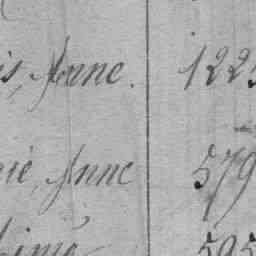 is, Anne. 122
rie, Anne 579
Aimé 595